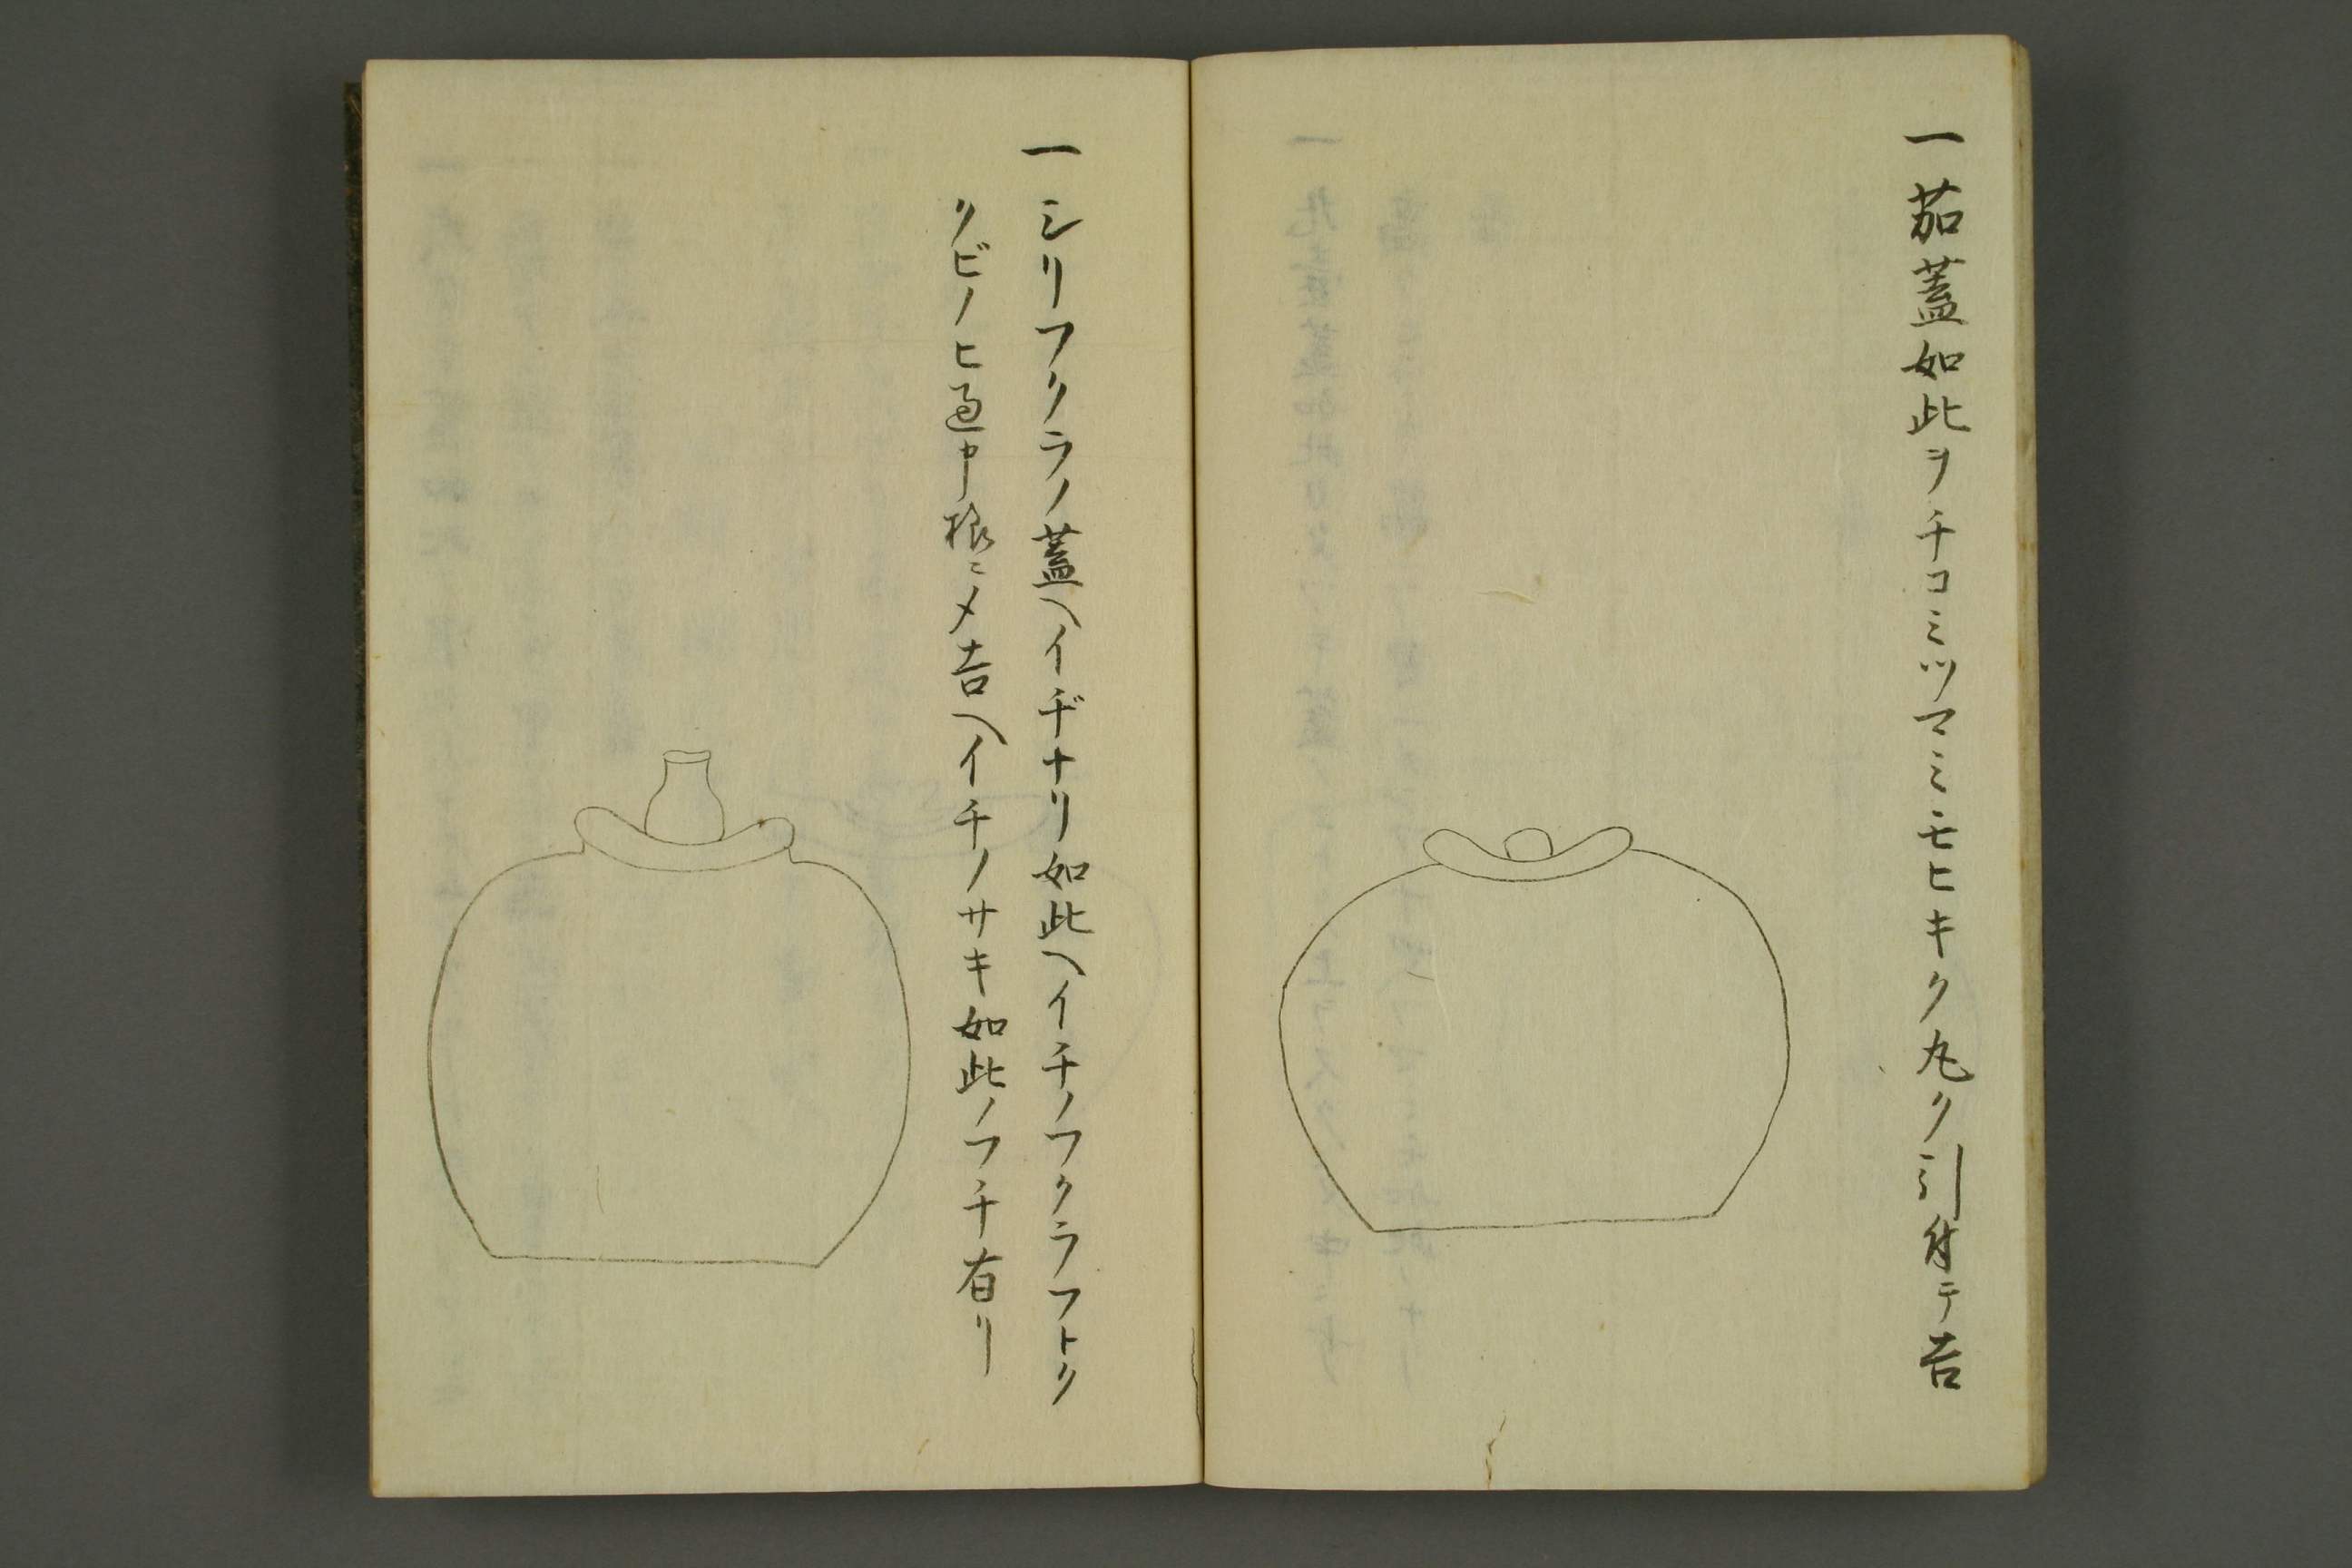 一茄蓋如此ヲチコミツマミモヒキク丸ク引付テ吉
一シリフクラノ蓋ヘイヂナリ如此ヘイチノフクラフトク
クビノヒ過申様ニメ吉ヘイチノサキ如此ノフチ有リ